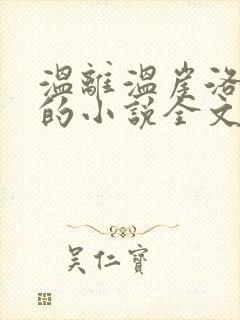 温離温崖洛
的小說全文
吴仁寶